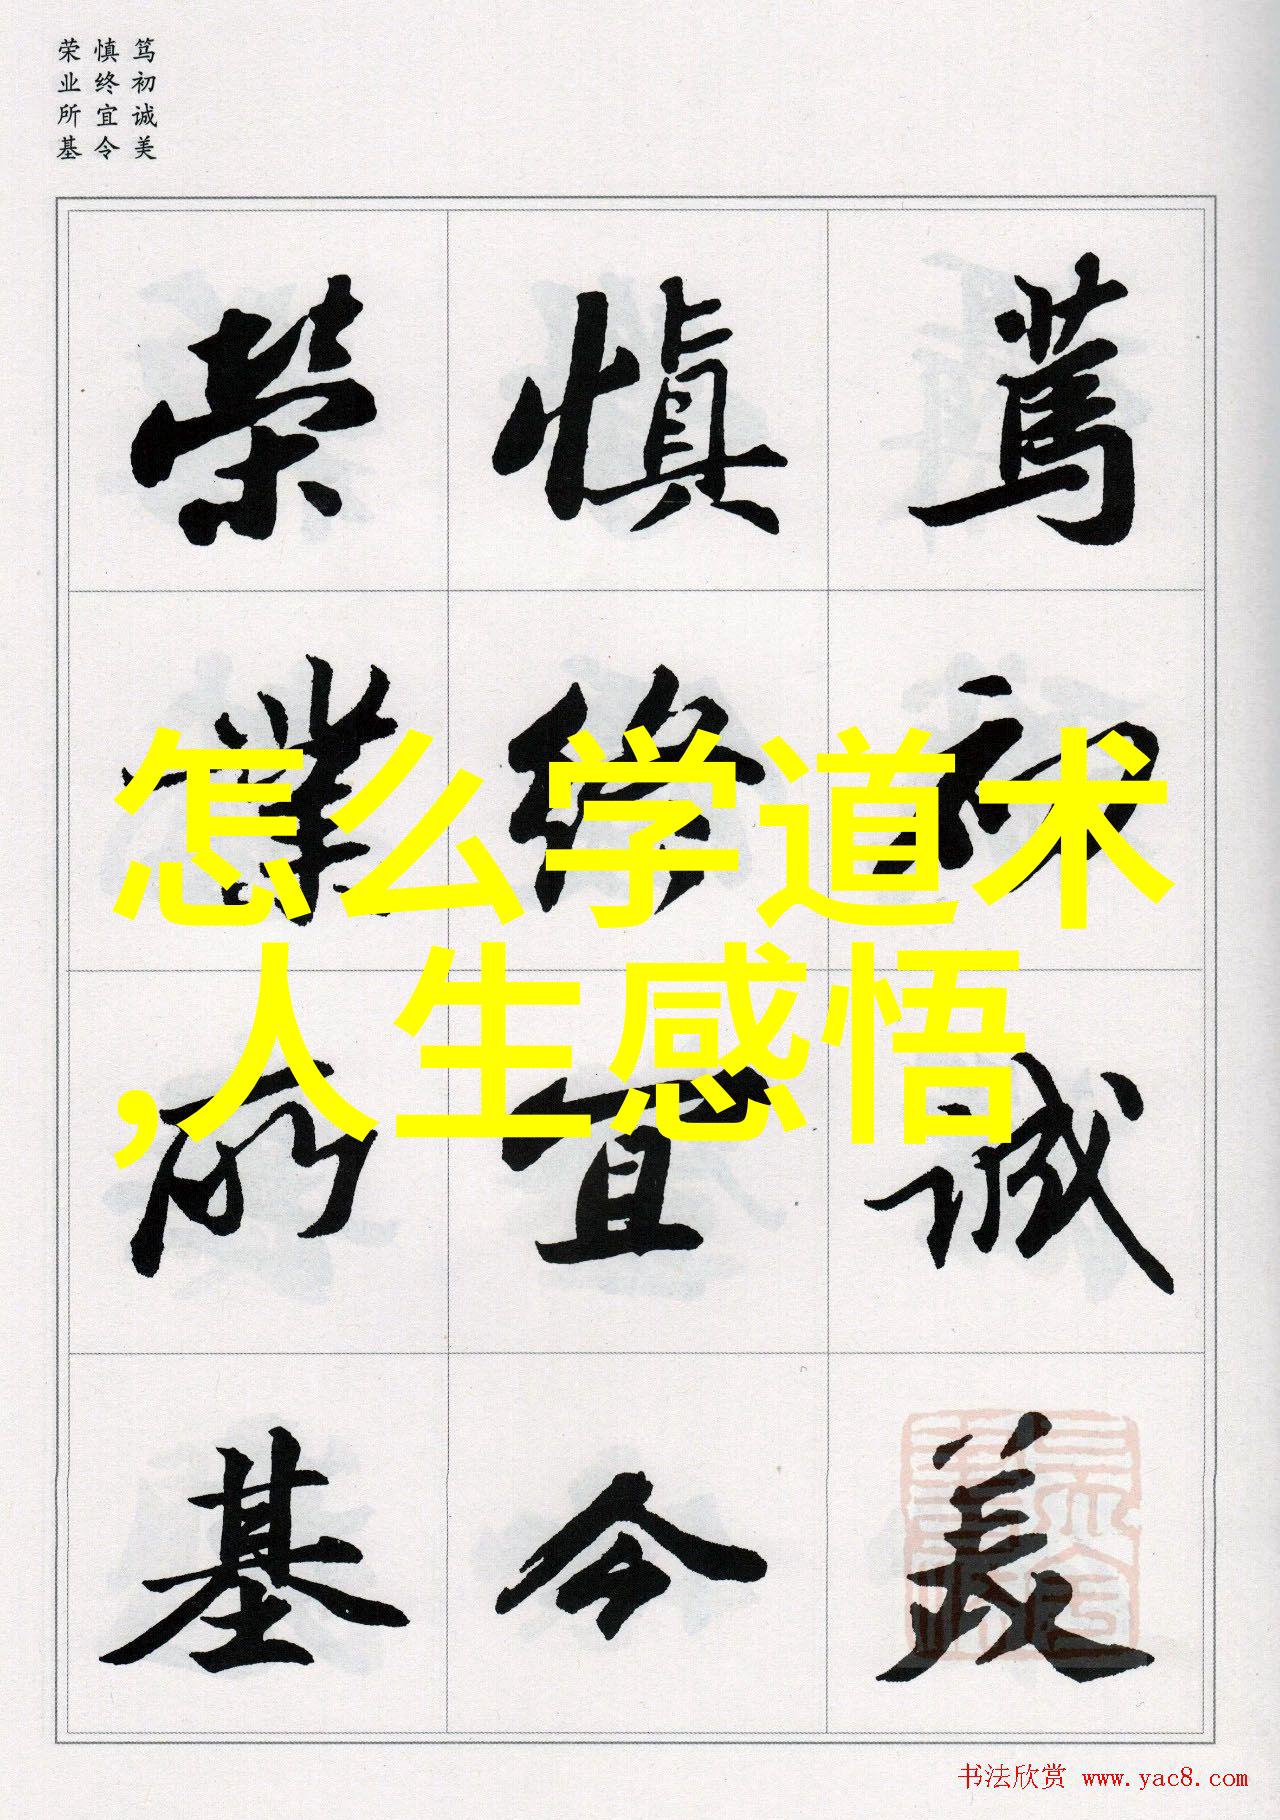 笃初诚美
慎终宜令
荣业所基
篤初誠美
慎終宜令
榮業所基
怎么学道术
,人生感悟
书法欣赏 www.yac8.com